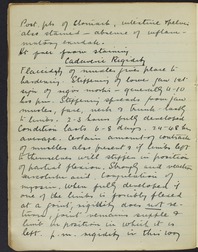 Post. pts of stomach, intestine & often
also stained – absence of inflam-
matory exudate.
pt free from staining
Cadaveric Rigidity
Flaccidity of muscles gives place to
hardening. Stiffening of lower jaw 1st
sign of rigor mortis – generally 4-10
hrs p.m. Stiffening spreads from jaw
muscles, face, neck & trunk – lastly
to limbs. 2-3 hours fully developed
Condition lasts 6-8 days. 24-48 hrs
average. Certain amount of contract.
of muscles also present & if limbs left
to themselves will stiffen in position
of partial flexion. Strongly acid
sarcolactic acid. Coagulation of
myosin. When fully developed if
one of the limbs is forcibly flexed
at a joint, rigidity does not re-
turn, joint remains supple &
limb in position in which it is
left. p.m. rigidity in this way